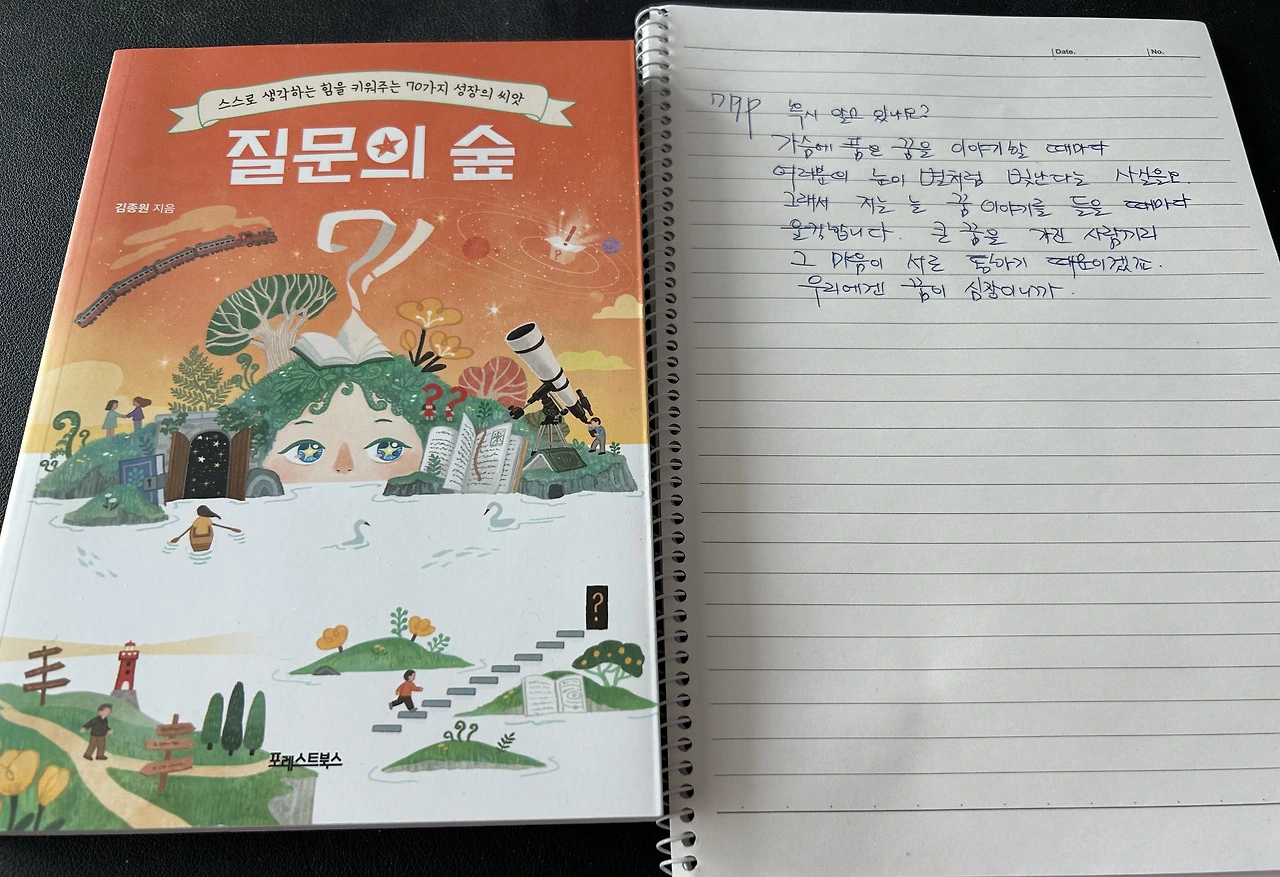 스스로 생각하는 힘을 키워주는 70가지 성장의 씨앗
질문의 숲
김종원 지음
?!
포레스트북스
Date.
No.
77P 혹시 알고 있나요?
가슴에 품은 꿈을 이야기할 때마다
여러분의 눈이 별처럼 빛난다는 사실을요.
그래서 저는 늘 꿈 이야기를 들을 때마다
울컥합니다. 큰 꿈을 가진 사람끼리
그 마음이 서로 닿기 때문이겠죠.
우리에겐 꿈이 심장이니까.